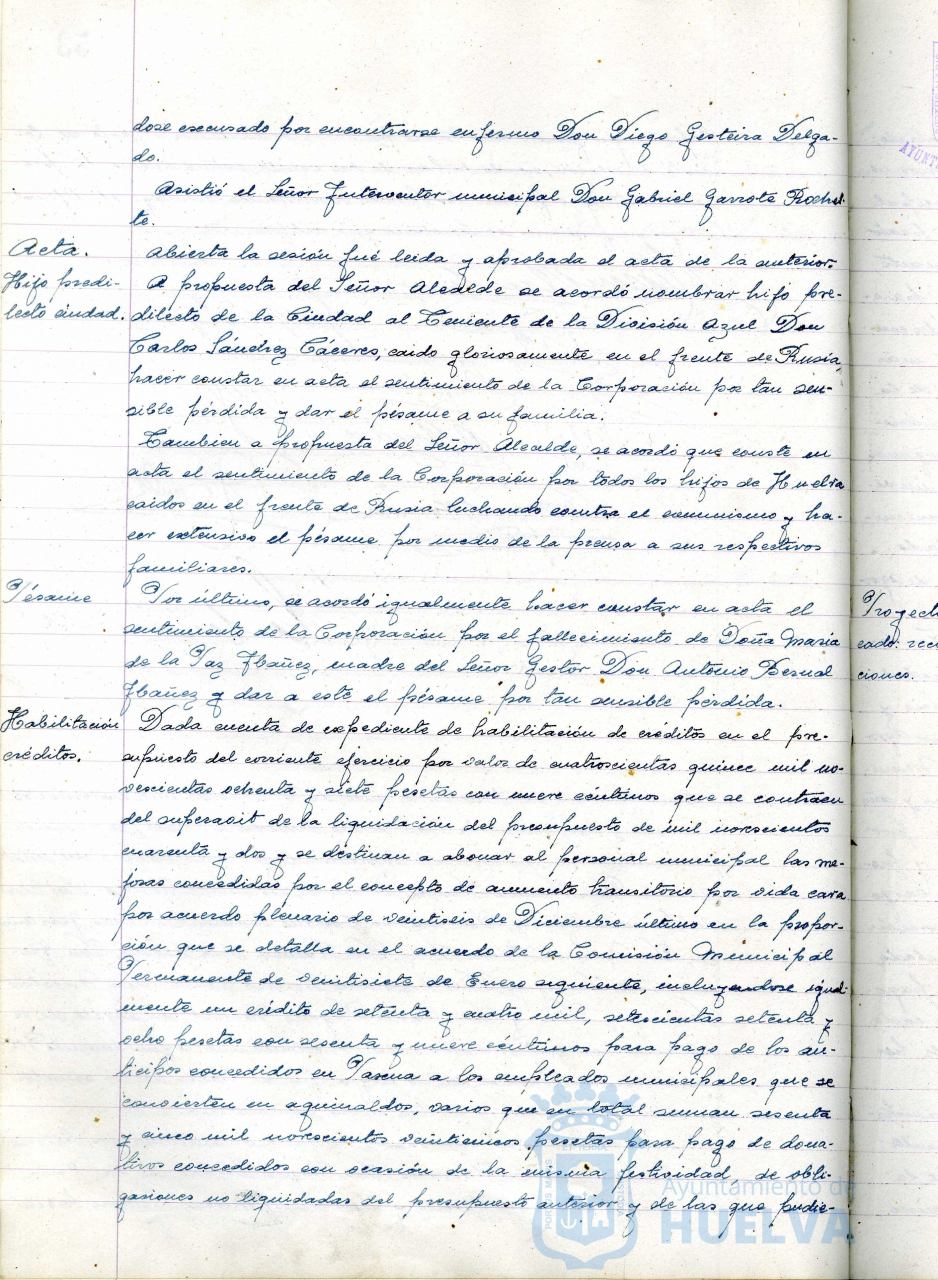 dose escusado por encontrarse enfermo Don Diego Gesteira Delga-
do.
Asistió el Señor Interventor municipal Don Gabriel Garrote Rochel-
te.
Acta.
Abierta la sesión fué leida y aprobada el acta de la anterior.
Hijo predi-
lecto ciudad.
A propuesta del Señor Alcalde se acordó nombrar hijo pre-
dilecto de la Ciudad al Teniente de la División Azul Don
Carlos Sánchez Cáceres, caido gloriosamente en el frente de Rusia,
hacer constar en acta el sentimiento de la Corporación por tan sen-
sible pérdida y dar el pésame a su familia.
Tambien a propuesta del Señor Alcalde, se acordó que conste en
acta el sentimiento de la Corporación por todos los hijos de Huelva
caidos en el frente de Rusia luchando contra el comunismo y ha-
cer extensivo el pésame por medio de la prensa a sus respectivos
familiares.
Pésame
Por último, se acordó igualmente hacer constar en acta el
sentimiento de la Corporación por el fallecimiento de Doña Maria
de la Paz Ibañez, madre del Señor Gestor Don Antonio Bernal
Ibañez y dar a este el pésame por tan sensible pérdida.
Habilitación
créditos.
Dada cuenta de expediente de habilitación de créditos en el pre-
supuesto del corriente ejercicio por valor de cuatroscientas quince mil no-
vescientas ochenta y siete pesetas con nueve céntimos que se contraen
del superavit de la liquidación del presupuesto de mil novescientos
cuarenta y dos y se destinan a abonar al personal municipal las me-
joras concedidas por el concepto de aumento transitorio por vida cara
por acuerdo plenario de veintiseis de Diciembre último en la propor-
ción que se detalla en el acuerdo de la Comisión Municipal
Permanente de veintisiete de Enero siguiente, incluyendose igual-
mente un crédito de setenta y cuatro mil, setescientas setenta y
ocho pesetas con sesenta y nueve céntimos para pago de los an-
ticipos concedidos en Pascua a los empleados municipales que se
convierten en aguinaldos, varios que en total suman sesenta
y cinco mil novescientos veinticinco pesetas para pago de dona-
tivos concedidos con ocasión de la misma festividad, de obli-
gasiones no liquidadas del presupuesto anterior y de las que pudie-
Proyect
cado
ciones.
Ayuntamiento de
HUELVA